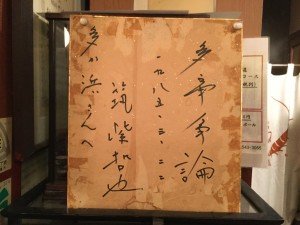 多事争論
一九八五・三・二二
筑紫哲也
多か浜さんへ
543-3065